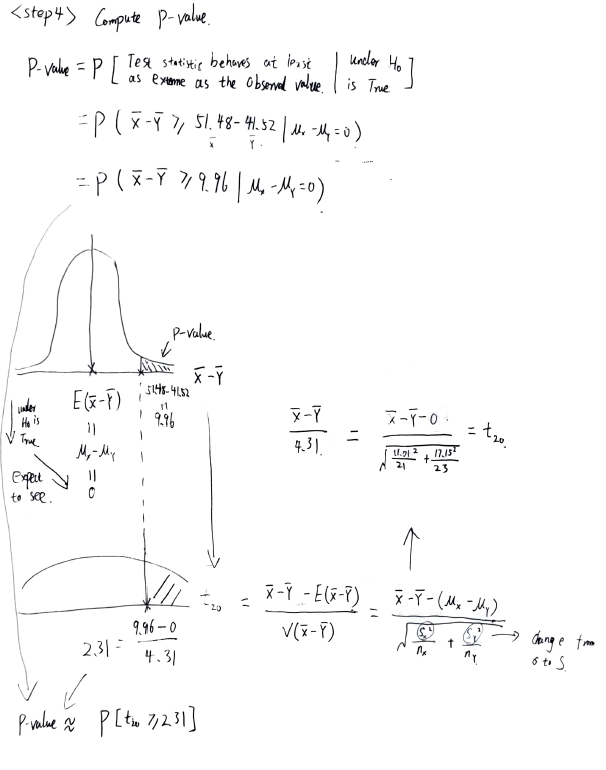 <step4> Compute p-value.
P-value = P [ Test statistic behaves at least | under H₀
as extreme as the observed value. | is True ]
= P ( X̄-Ȳ ≥ 51.48-41.52 | μx - μY = 0 )
x̄ ȳ
= P ( X̄-Ȳ ≥ 9.96 | μx - μY = 0 )
P-value.
X̄-Ȳ
51.48-41.52
=
9.96
under
H₀ is
True
E(X̄-Ȳ)
=
μx - μY
=
0
Expect
to see.
X̄-Ȳ / 4.31 = X̄-Ȳ-0 / √(11.01²/21 + 17.15²/23) = t₂₀
t₂₀ = X̄-Ȳ - E(X̄-Ȳ) / V(X̄-Ȳ) = X̄-Ȳ - (μx - μY) / √(Sx²/nx + SY²/nY) → change from
σ to S.
2.31 = 9.96-0 / 4.31
P-value ≈ P [ t₂₀ ≥ 2.31 ]